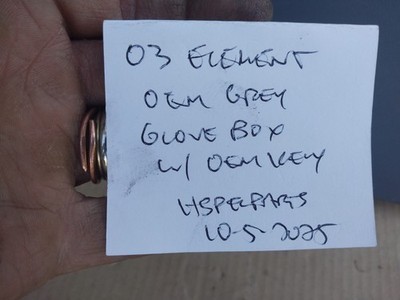 03 ELEMENT
OEM GREY
GLOVE BOX
W/ OEM KEY
HSPECPARTS
10-5-2025